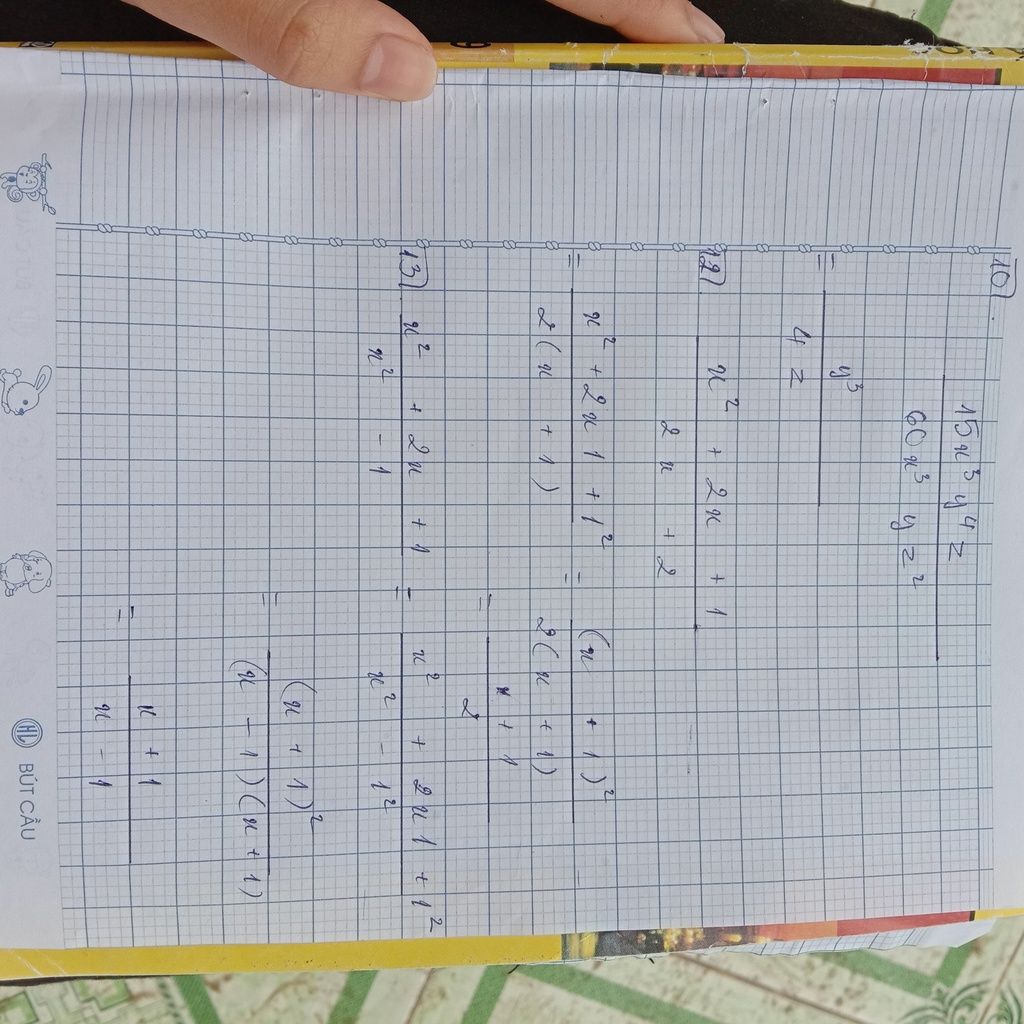 10)
15x³y⁴z
60x³yz²
= y³
4z
12) x² + 2x + 1
2x + 2
= x² + 2x1 + 1² = (x + 1)²
2(x + 1) 2(x + 1)
= x + 1
2
13) x² + 2x + 1 = x² + 2x1 + 1²
x² - 1 x² - 1²
= (x + 1)²
(x - 1)(x + 1)
= x + 1
x - 1
HL BÚT CẦU